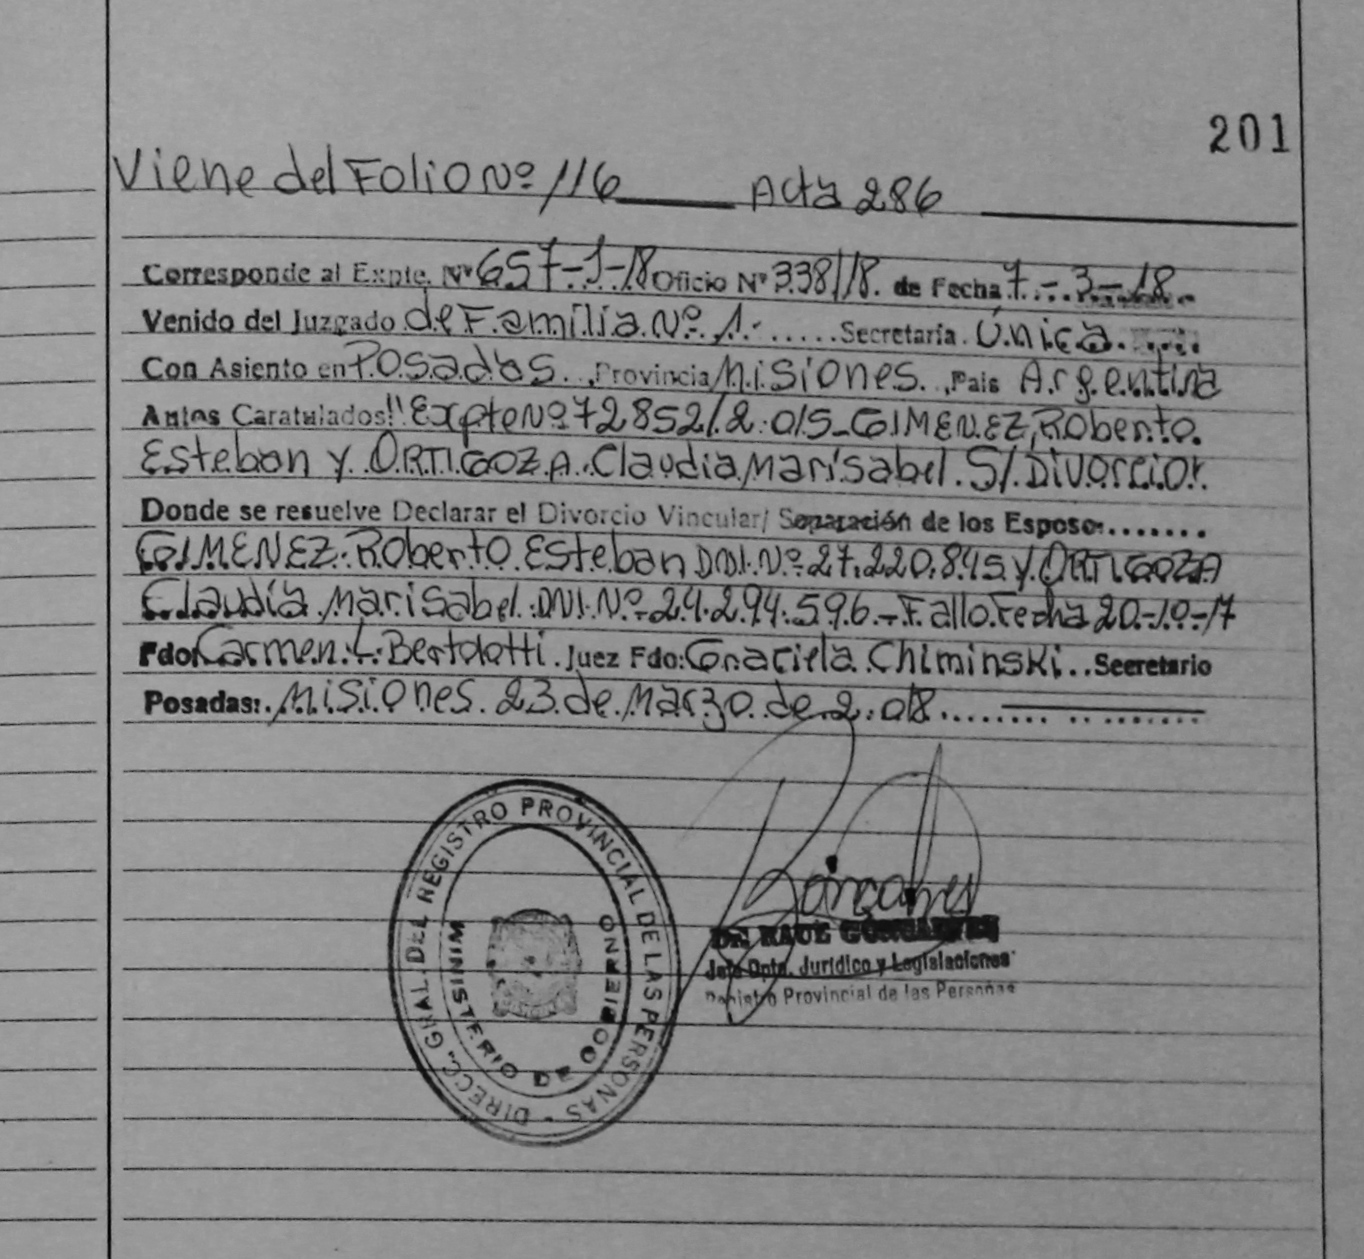 201
Viene del Folio Nº 116 Acta 286
Corresponde al Expte. Nº 657-J-18 Oficio Nº 338/18. de Fecha 7.-.3-.18.
Venido del Juzgado de Familia Nº 1.- ..... Secretaría. Única.
Con Asiento en Posadas. Provincia Misiones. País Argentina
Autos Caratulados: "Expte Nº 72852/2.015-GIMENEZ, Roberto.
Esteban y ORTIGOZA. Claudia Marisabel. S/Divorcio".
Donde se resuelve Declarar el Divorcio Vincular/ Separación de los Esposos.......
GIMENEZ. Roberto Esteban DNI. Nº 27.220.845 y ORTIGOZA
Claudia Marisabel. DNI. Nº 24.294.596.- Fallo Fecha 20-10-17
Fdo: Carmen. L. Bertolotti. Juez Fdo: Graciela Chiminski.. Secretario
Posadas:. Misiones. 23 de Marzo de 2.018.
DIRECC. GRAL. DEL REGISTRO PROVINCIAL DE LAS PERSONAS -
MINISTERIO DE GOBIERNO
DR. RAUL GONCALVES
Jefe Dpto. Jurídico y Legislaciones
Registro Provincial de las Personas